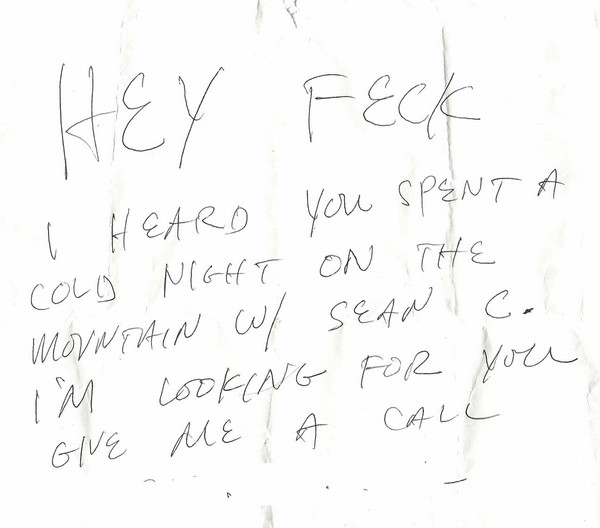 HEY FECK
I HEARD YOU SPENT A
COLD NIGHT ON THE
MOUNTAIN W/ SEAN C.
I'M LOOKING FOR YOU
GIVE ME A CALL